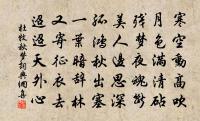 寒空動高吹
月色滿清砧
殘夢夜魂斷
美人邊思深
孤鴻秋出塞
一葉暗辭林
又寄征衣去
迢迢天外心
杜牧秋夢詞典網